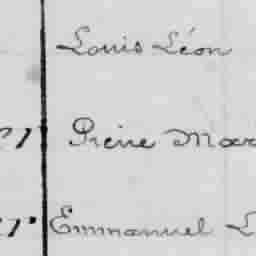 Louis Léon
Irène Mar
Emmanuel L